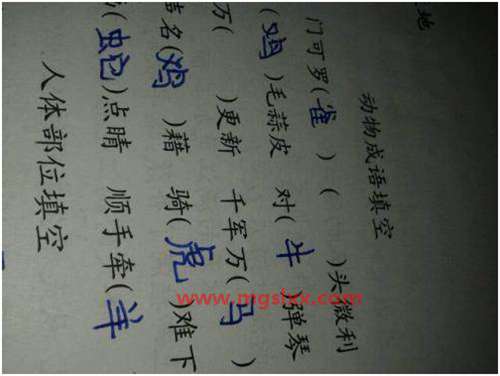 地
动物成语填空
门可罗(雀) ( )头微利
(鸡)毛蒜皮 对(牛)弹琴
万( )更新 千军万(马)
名(鸡)藉 骑(虎)难下
(蛇)点睛 顺手牵(羊)
人体部位填空
www.mgshxx.com